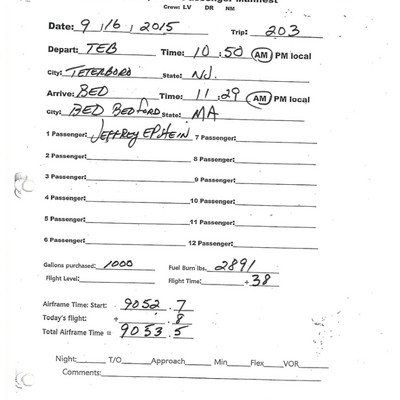 Passenger Manifest
Crew: LV DR NM
Date: 9 / 16 / 2015 Trip: 203
Depart: TEB Time: 10:50 AM PM local
City: TETERBORO State: NJ.
Arrive: BED Time: 11:29 AM PM local
City: BED BEDFORD State: MA
1 Passenger: JEFFREY EPSTEIN 7 Passenger:
2 Passenger: 8 Passenger:
3 Passenger: 9 Passenger:
4 Passenger: 10 Passenger:
5 Passenger: 11 Passenger:
6 Passenger: 12 Passenger:
Gallons purchased: 1000 Fuel Burn lbs. 2891
Flight Level: Flight Time: +38
Airframe Time: Start: 9052.7
Today's flight: + .8
Total Airframe Time = 9053.5
Night: T/O Approach Min Flex VOR
Comments: